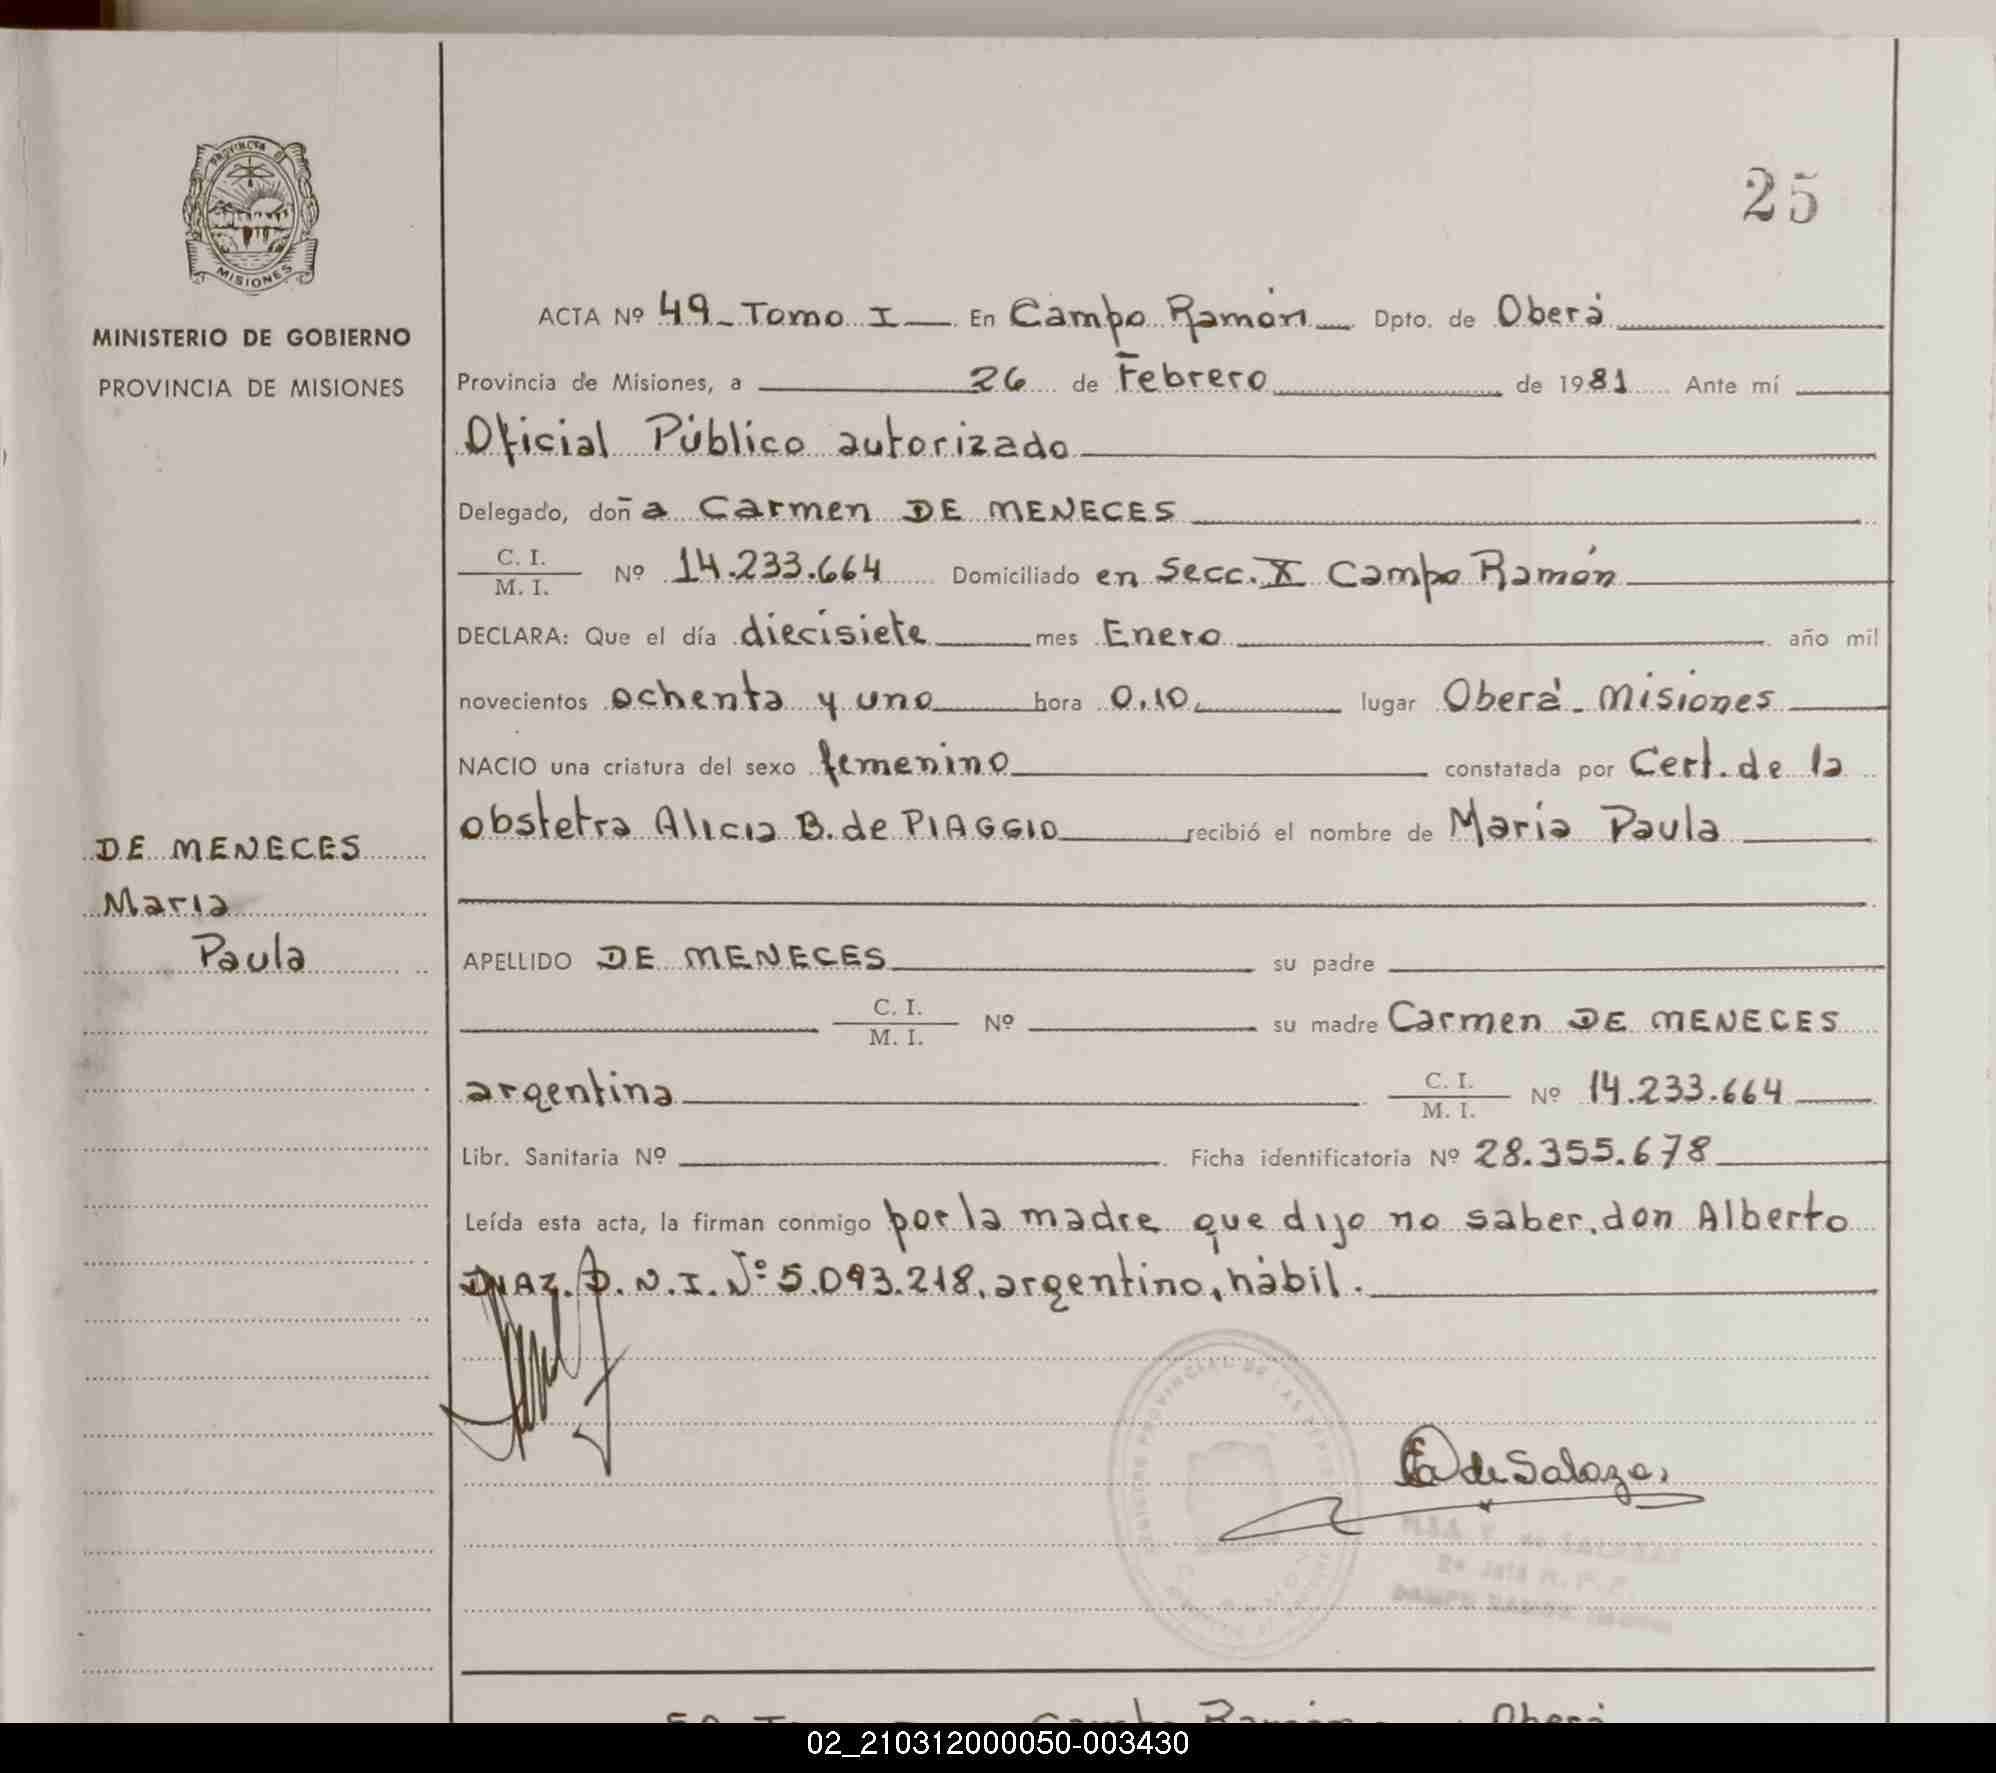 PROVINCIA DE
MISIONES
MINISTERIO DE GOBIERNO
PROVINCIA DE MISIONES
25
ACTA Nº 49 - Tomo I — En Campo Ramón Dpto. de Oberá
Provincia de Misiones, a 26 de Febrero de 1981 Ante mí
Oficial Público autorizado
Delegado, doña Carmen DE MENECES
C. I.
M. I. Nº 14.233.664 Domiciliado en Secc. X Campo Ramón
DECLARA: Que el día diecisiete mes Enero año mil
novecientos ochenta y uno hora 0,10 lugar Oberá - Misiones
NACIO una criatura del sexo femenino constatada por Cert. de la
obstetra Alicia B. de PIAGGIO recibió el nombre de María Paula
DE MENECES
Maria
Paula
APELLIDO DE MENECES su padre
C. I.
M. I. Nº su madre Carmen DE MENECES
argentina C. I.
M. I. Nº 14.233.664
Libr. Sanitaria Nº Ficha identificatoria Nº 28.355.678
Leída esta acta, la firman conmigo por la madre que dijo no saber, don Alberto
DIAZ. D.N.I. Nº 5.093.218, argentino, hábil.
de Salazar
de SALAZAR
CAMPO RAMON
02_210312000050-003430